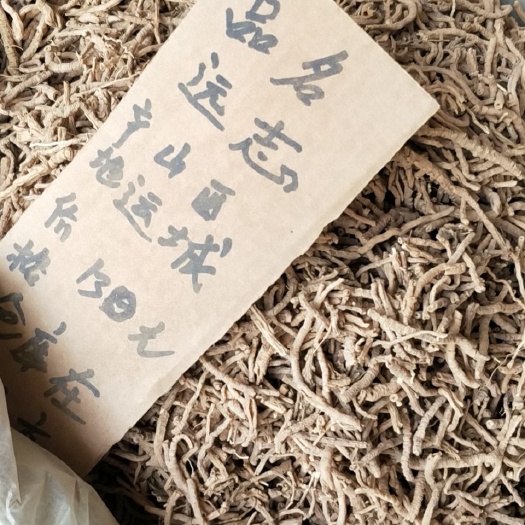 品名
远志
产山西
地运城
价130元
格
库在